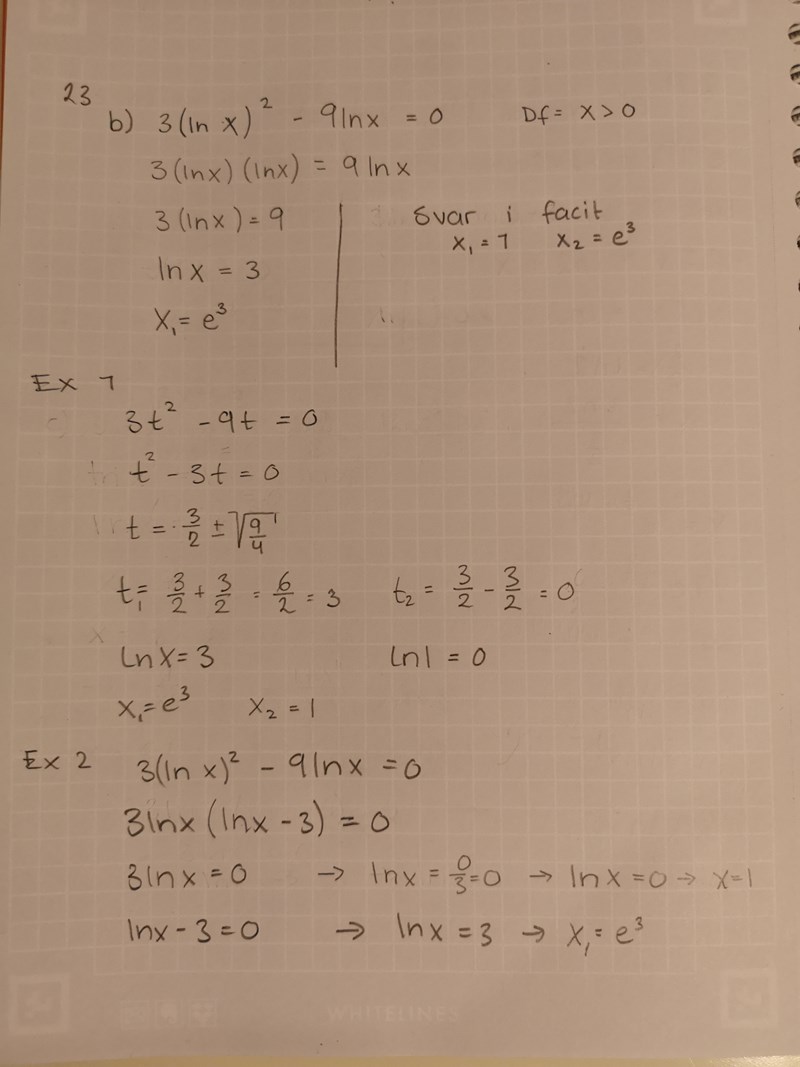 23
b) 3(ln x)² - 9lnx = 0 Df = x > 0
3(lnx)(lnx) = 9 lnx
3(lnx) = 9
Svar i facit
x₁ = 1 x₂ = e³
ln x = 3
x₁ = e³
Ex 1
3t² - 9t = 0
t² - 3t = 0
t = 3/2 ± √9/4
t₁ = 3/2 + 3/2 = 6/2 = 3 t₂ = 3/2 - 3/2 = 0
ln x = 3 ln1 = 0
x₁ = e³ x₂ = 1
Ex 2 3(ln x)² - 9lnx = 0
3lnx (lnx - 3) = 0
3lnx = 0 → lnx = 0/3 = 0 → lnx = 0 → x = 1
lnx - 3 = 0 → lnx = 3 → x₁ = e³
WHITELINES